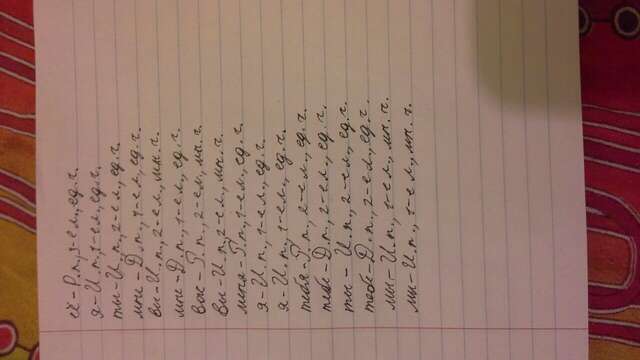 её - Р.п., 3-е л., ед.ч.
я - И.п., 1-е л., ед.ч.
ты - И.п., 2-е л., ед.ч.
мне - Д.п., 1-е л., ед.ч.
вы - И.п., 2-е л., мн.ч.
мне - Д.п., 1-е л., ед.ч.
вас - Р.п., 2-е л., мн.ч.
вы - И.п., 2-е л., мн.ч.
меня - Р.п., 1-е л., ед.ч.
я - И.п., 1-е л., ед.ч.
я - И.п., 1-е л., ед.ч.
тебя - Р.п., 2-е л., ед.ч.
тебе - Д.п., 2-е л., ед.ч.
ты - И.п., 2-е л., ед.ч.
тебе - Д.п., 2-е л., ед.ч.
мы - И.п., 1-е л., мн.ч.
мы - И.п., 1-е л., мн.ч.